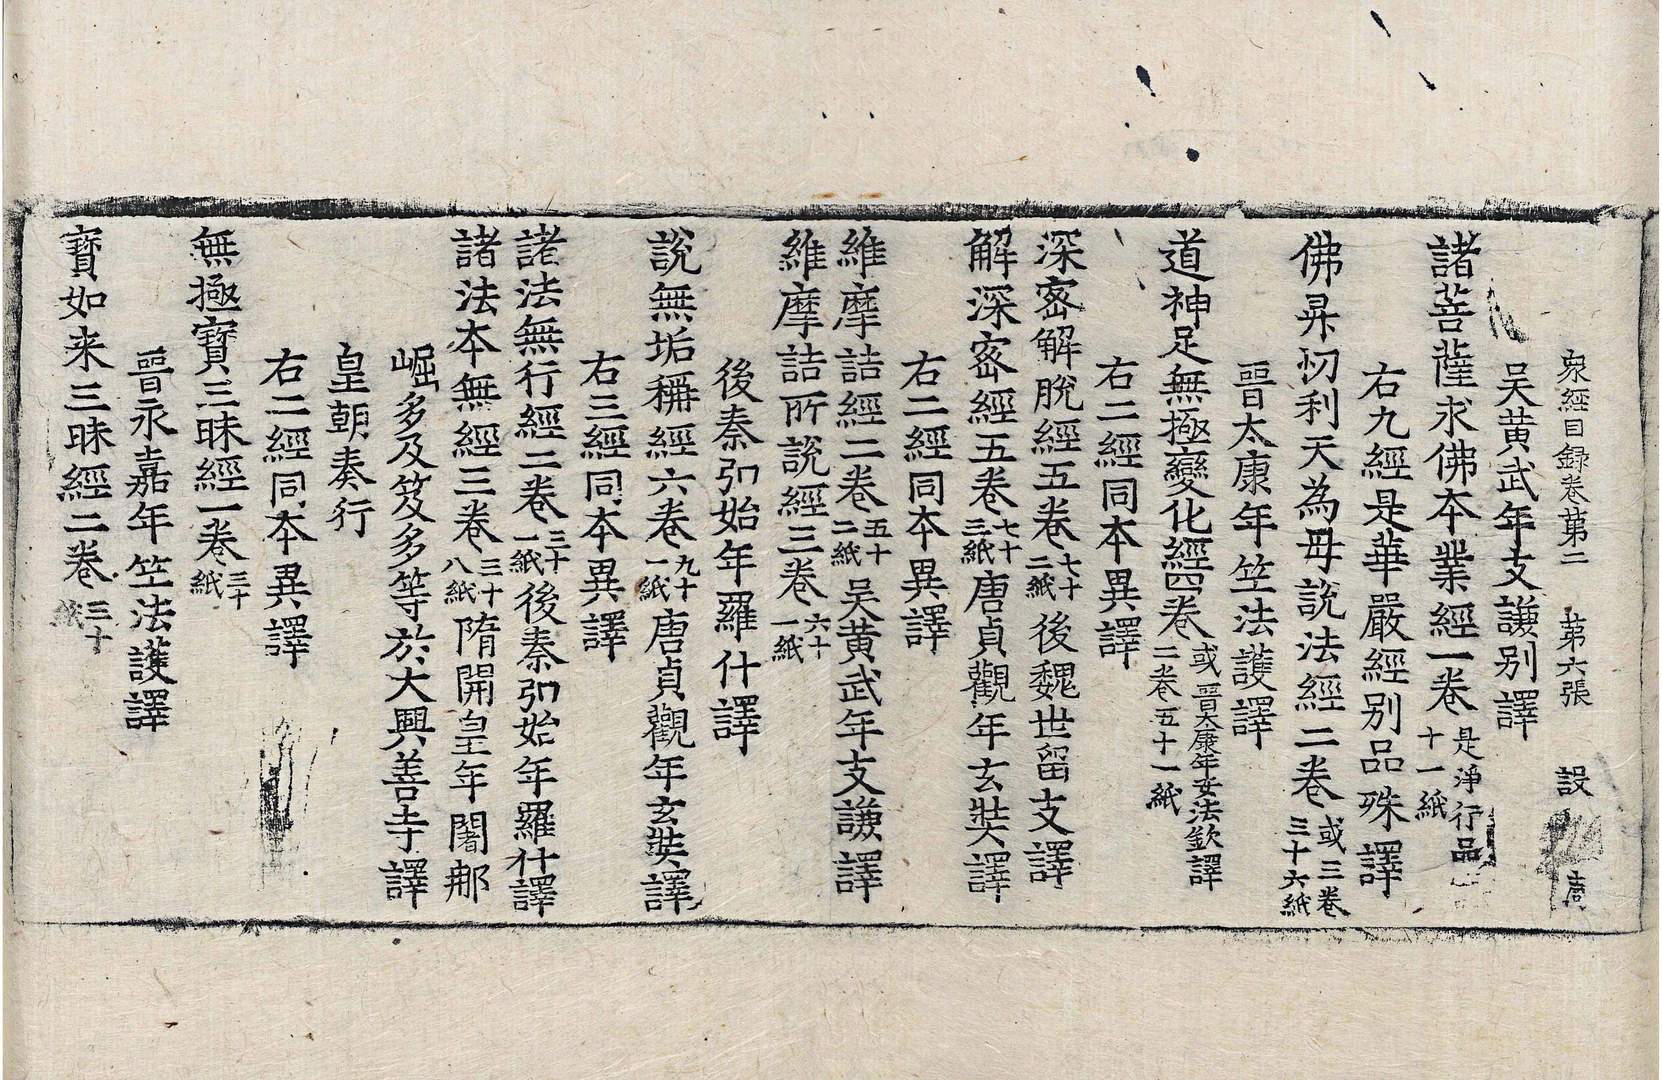 衆經目録卷苐二　苐六張　設
吴黄武年支謙别譯
諸菩薩求佛本業經一卷是淨行品十一紙
右九經是華嚴經别品殊譯
佛昇忉利天為母說法經二卷或三卷三十六紙
晉太康年竺法護譯
道神足無極變化經四卷或二卷五十一紙晉太康年安法欽譯
右二經同本異譯
深密解脫經五卷七十二紙後魏世留支譯
解深密經五卷七十三紙唐貞觀年玄奘譯
右二經同本異譯
維摩詰經二卷五十二紙吴黄武年支謙譯
維摩詰所說經三卷六十一紙
後秦弘始年羅什譯
說無垢稱經六卷九十一紙唐貞觀年玄奘譯
右三經同本異譯
諸法無行經二卷三十一紙後秦弘始年羅什譯
諸法本無經三卷三十八紙隋開皇年闍那
崛多及笈多等於大興善寺譯
皇朝奏行
右二經同本異譯
無極寶三昧經一卷三十紙
晉永嘉年竺法護譯
寶如来三昧經二卷三十紙